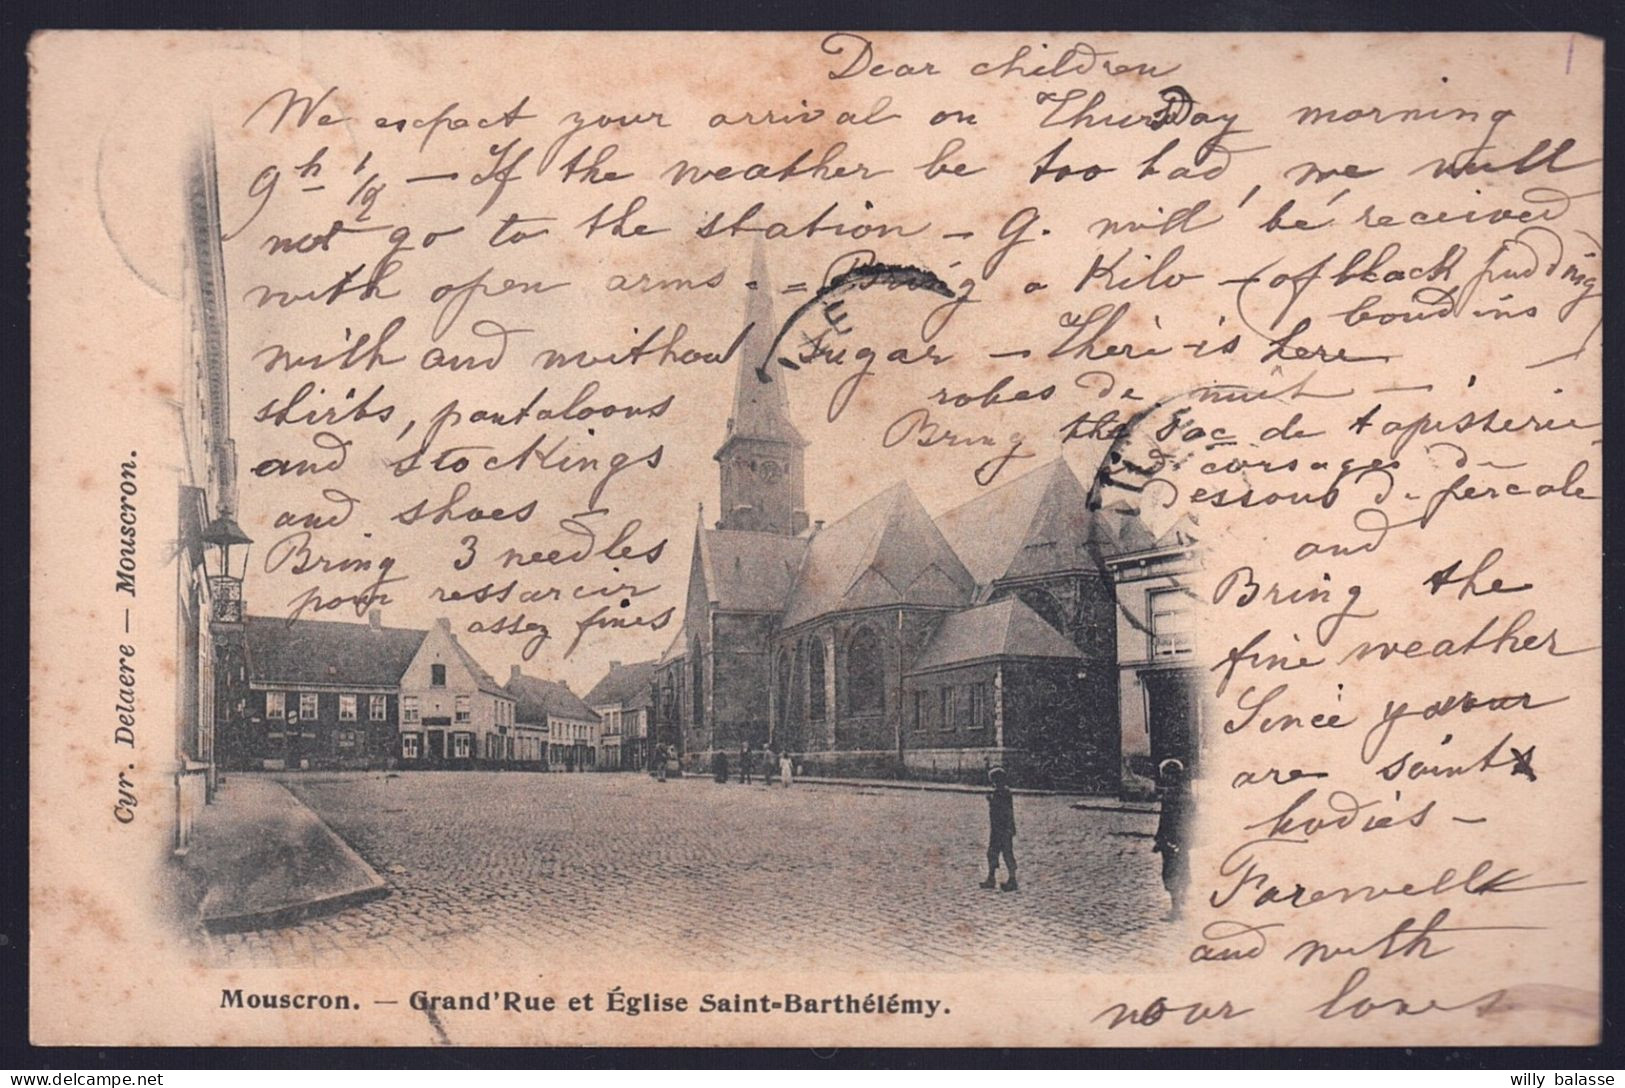 Dear children
We expect your arrival on Thursday morning
9h 1/2 — If the weather be too bad, we will
not go to the station — G. will be received
with open arms. = Bring a Kilo — (of black pudding
boudins)
with and without sugar — There is here
shirts, pantaloons
robes de nuit —
and stockings
Bring the sac de tapisserie
and shoes —
corsages
dessous de percale
Bring 3 needles
and
pour ressarcir
assez fines
Bring the
fine weather
Since your
are saint
bodies —
Farewell
and with
our loves
Cyr. Delaere — Mouscron.
Mouscron. — Grand'Rue et Église Saint-Barthélémy.
willy balasse